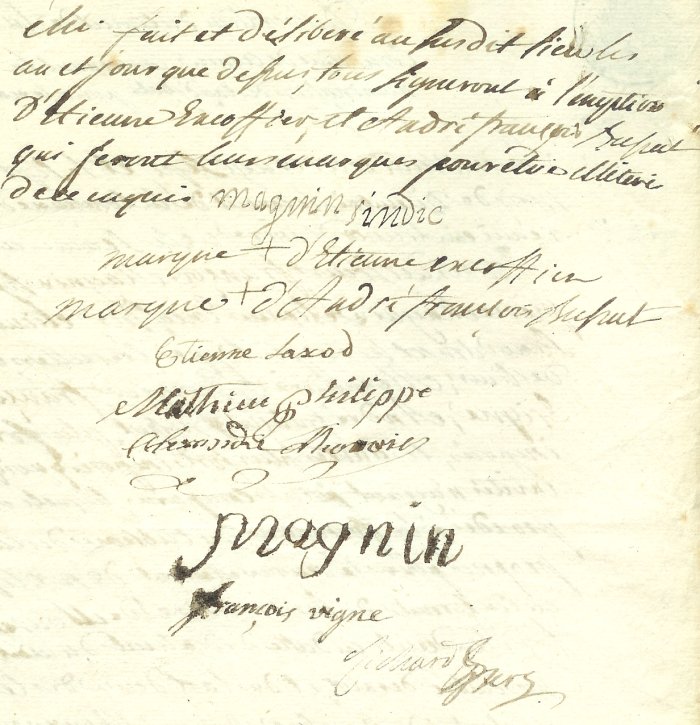 élu fait et déliberé au susdit lieu les
an et jour que dessus, tous signeront à l'exeption
D'Etienne Encoffier, et André françois
qui feront leurs marques pour être
de ce enquis magnin sindic
marque + d'Etienne encoffier
marque + d'André françois
Etienne Saxod
Mathieu Philippe
Alexandre
magnin
françois vigne
Richard